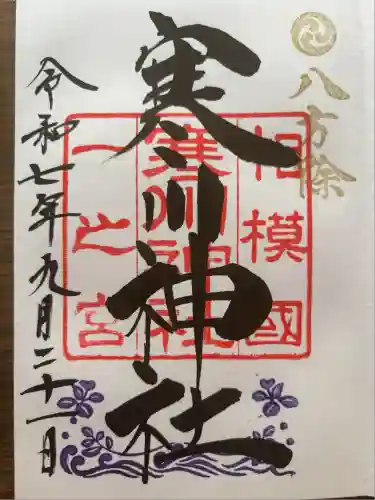 八方除
相模國
寒川神社
寒川神社
一之宮
令和七年九月二十一日